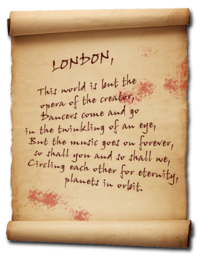 LONDON,
This world is but the
opera of the creator,
Dancers come and go
in the twinkling of an eye,
But the music goes on forever,
so shall you and so shall we,
Circling each other for eternity,
planets in orbit.